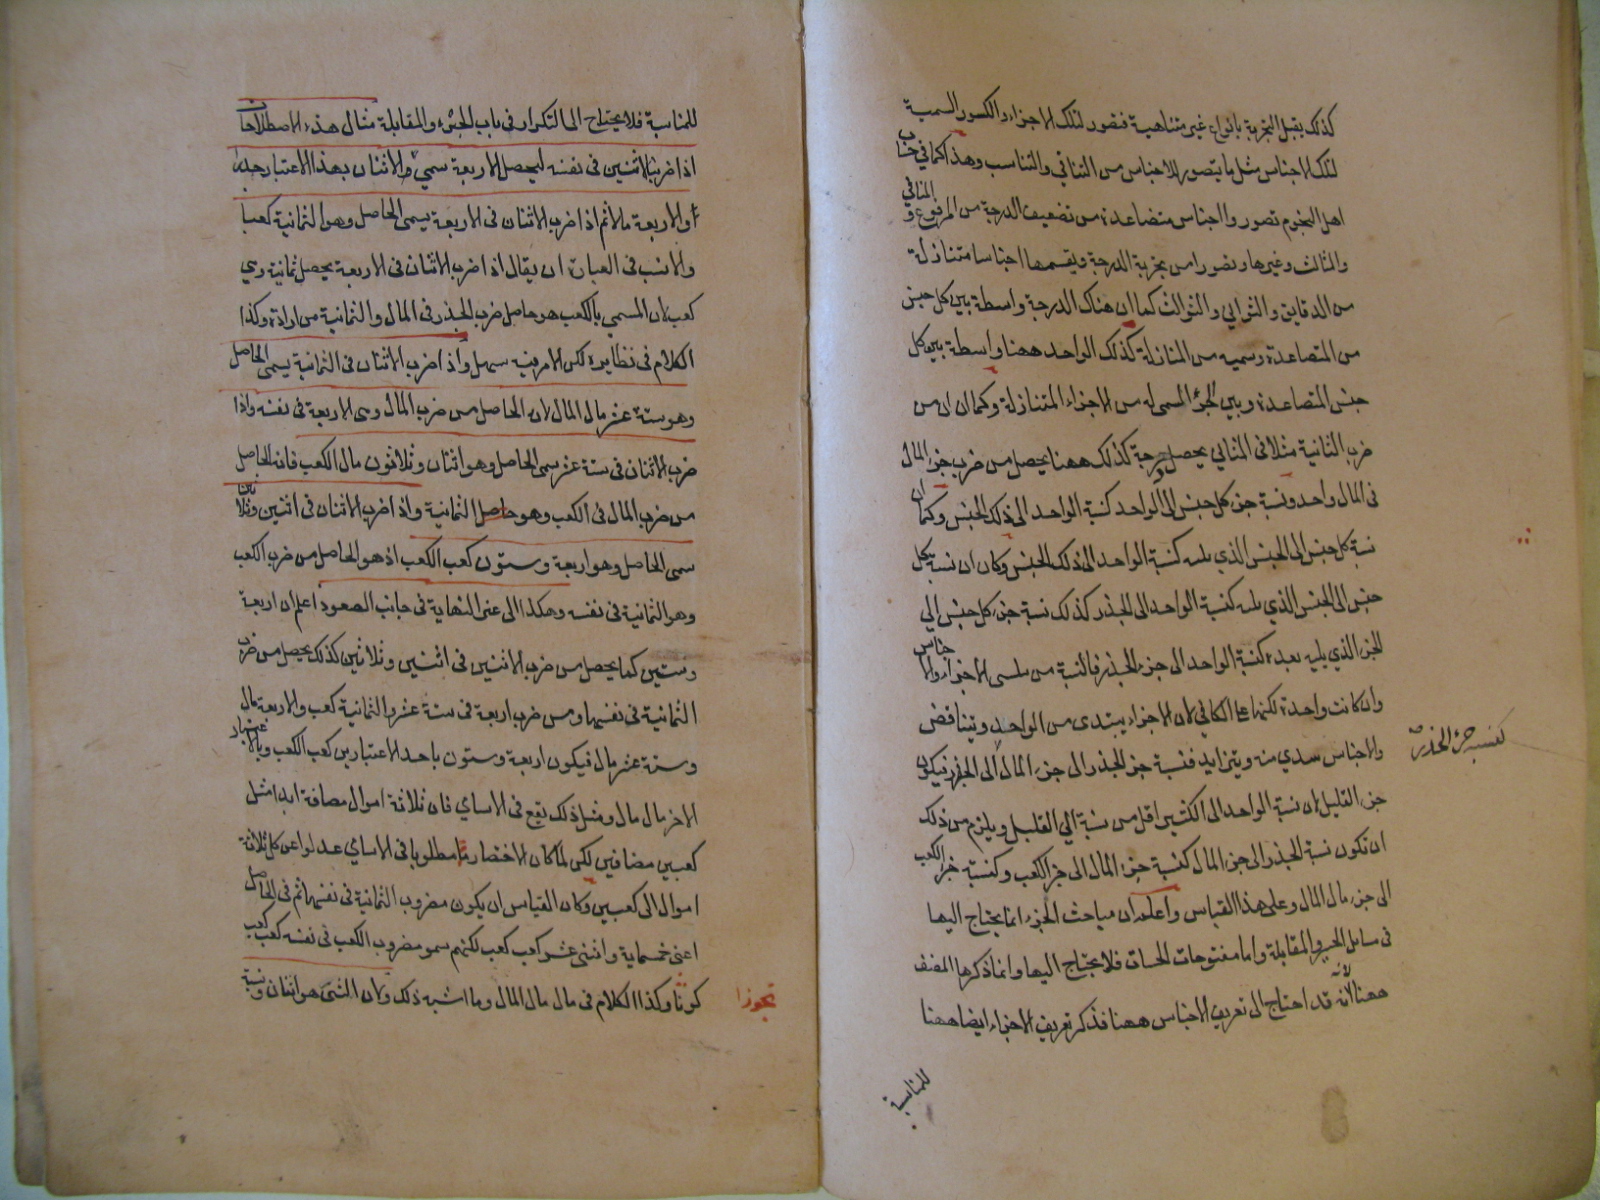 كذلك يقبل التجزية بانواع غير متناهية فتصور لتلك الاجزاء والكسور السمية
لتلك الاجناس مثل ما يتصور للاجناس من التنافي والتناسب وهذا كما في حساب
اهل النجوم تصور وااجناس متصاعدة من تضعيف الدرجة من المرفوع و المثاني
والمثالث وغيرها وتصورا من تجزية الدرجة وتقسمها اجناسا متنازلة
من الدقايق والثواني والثوالث كما ان هناك الدرجة واسطة بين كل جنس
من المتصاعدة وسميه من المتنازلة كذلك الواحد ههنا واسطة بين كل
جنس المتصاعدة وبين الجزؤ المسمى له من الاجزاء المتنازلة وكما ان ان من
ضرب الثانية مثلا في المثاني يحصل درجة كذلك ههنا يحصل من ضرب جزء المال
في المال واحد ونسبة جزء كل جنس الى الواحد كنسبة الواحد الى ذلك الجنس وكما ان
نسبة كل جنس الى الجنس الذي يليه كنسبة الواحد الى ذلك الجنس وكان ان نسبة كل
جنس الى الجنس الذي يليه كنسبة الواحد الى الجذر كذلك نسبة جزء كل جنس الى
الجزء الذي يليه بعده كنسبة الواحد الى جزء الجذر فالنسبة من سلسى الاجزاء والاجناس
وان كانت واحدة لكنها على التكافي لان الاجزاء يبتدى من الواحد ويتناقض
والاجناس يبتدي منه ويتزايد فنسبة جزء الجذر الى جزء المال الى الجذر فيكون
كنسبة جزء الجذر
جزء القليل لان نسبة الواحد الى الكثير اقل من نسبة الي القليل ويلزم من ذلك
ان تكون نسبة الجذر الى جزء المال كنسبة جزء المال الى جزء الكعب وكنسبة جزء الكعب
الى جزء مال المال وعلى هذا القياس واعلم ان مباحث الجزء انما يحتاج اليها
في مسايل الجبر والمقابلة واما مفتوحات الحساب فلا يحتاج اليها وانما ذكرها المصنف
ههنا لانه قد احتاج الى تعريف الاجناس ههنا فذكر تعريف الاجزاء ايضا ههنا
للمناسبة
للمناسبة فلا يحتاج الى التكرار في باب الجبر والمقابلة مثال هذه الاصطلاحات
اذا ضربنا الاثنين في نفسه ليحصل الاربعة سمي والاثنان بهذا الاعتبار جذرا
او الاربعة مالا ثم اذا ضرب الاثنان في الاربعة يسمى الحاصل وهو الثمانية كعبا
والانسب في العبارة ان يقال اذا ضرب الاثنان في الاربعة يحصل ثمانية وهي
كعب لان المسمي بالكعب هو حاصل ضرب الجذر في المال والثمانية من اراده وكذا
الكلام في نظايره لكن الامر فيه سهل واذا ضرب الاثنان في الثمانية يسمى الحاصل
وهو ستة عشر مال المال لانه الحاصل من ضرب المال وهى الاربعة في نفسه واذا
ضرب الاثنان في ستة عشر سمى الحاصل وهو اثنان وثلاثون مال الكعب فانه الحاصل
من ضرب المال في الكعب وهو حاصل الثمانية واذا ضرب الاثنان في اثنين وثلاثين
سمى الحاصل وهو اربعة وستون كعب الكعب اذ هو الحاصل من ضرب الكعب
وهو الثمانية في نفسه وهكذا الى غير النهاية في جانب الصعود اعلم ان اربعة
وستين كما يحصل من ضرب الاثنين في اثنين وثلاثين كذلك يحصل من ضرب
الثمانية في نفسها ومن ضرب اربعة في ستة عشر والثمانية كعب والاربعة مال
وستة عشر مال مال فيكون اربعة وستون باحد الاعتبارين كعب الكعب وبالاعتبار
الاخر مال مال مال ومثل ذلك يقع في الاسامي فان ثلاثة اموال مضافة ابدا مثل
كعبين مضافين لكن لما كان الاختصار مطلوبا في الاسامي عدلوا عن كل ثلاثة
اموال الى كعبين وكان القياس ان يكون مضروب الثمانية في نفسها ثم في الحاصل
اعنى خمسماية واثنى عشر كعب كعب كعب لكنهم سموا مضروب الكعب في نفسه كعب كعب
كونا وكذا الكلام في مال مال المال وما اشبه ذلك ولان الشئ هو اثنان ونسبة
تجوزا